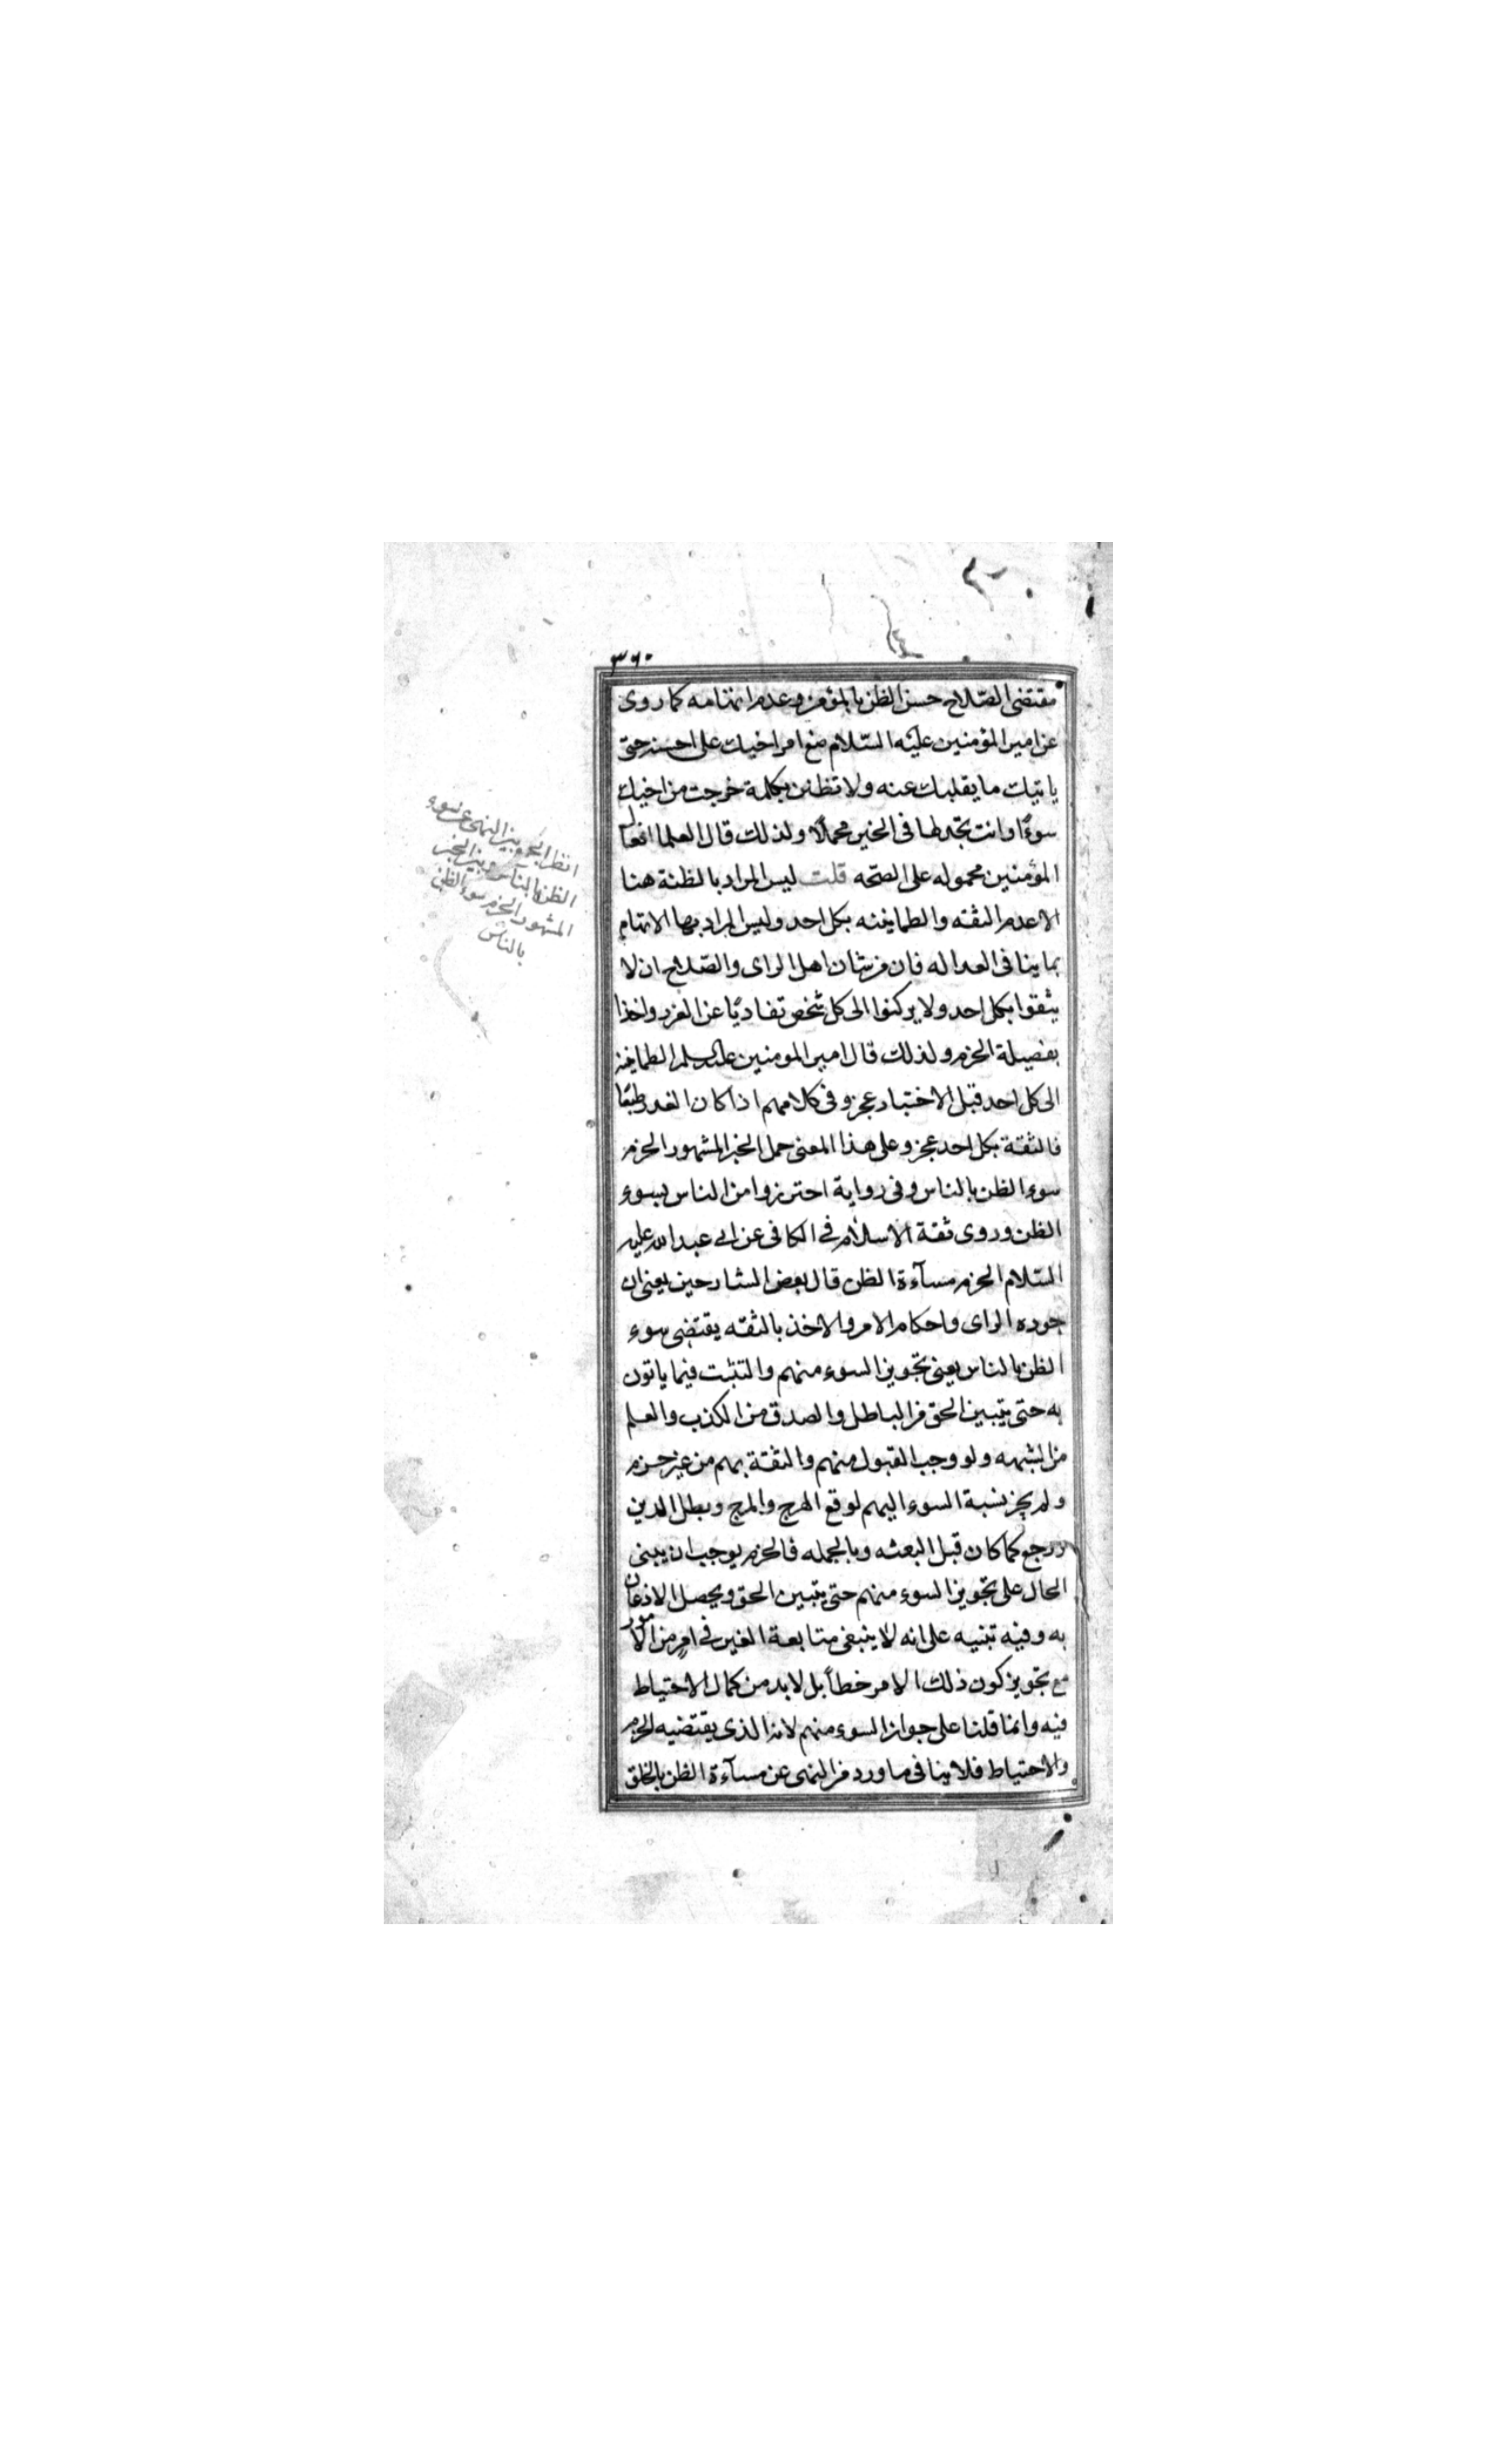 ٣٦٠
مقتضى الصّلاح حسن الظن بالمؤمن وعدم اتهامه كما روى
عن امير المؤمنين عليه السّلام ضع امر اخيك على احسنه حتى
ياتيك ما يقلبك عنه ولا تظنن بكلمة خرجت من اخيك
سوءًا وانت تجد لها فى الخير محملًا ولذلك قال العلما افعال
المؤمنين محموله على الصّحه قلت ليس المراد بالظنة هنا
الا عدم الثقه والطمانينه بكل احد وليس المراد بها الاتهام
بما ينافى العداله فان من شان اهل الراى والصّلاح ان لا
يثقوا بكل احد ولا يركنوا الى كل شخص تفاديًا عن الغرر واخذا
بفضيلة الحزم ولذلك قال امير المومنين عليه السلم الطمانينه
الى كل احد قبل الاختبار عجز وفى كلامهم اذا كان الغدر طبعًا
فالثقة بكل احد عجز وعلى هذا المعنى حمل الخبر المشهور الحزم
سوء الظن بالناس وفى رواية احترزوا من الناس بسوء
الظن وروى ثقة الاسلام فى الكافى عن ابى عبد الله عليه
السّلام الحزم مسآءة الظن قال بعض الشارحين يعنى ان
جوده الراى واحكام الامر والاخذ بالثقه يقتضى سوء
الظن بالناس يعنى تجويز السوء منهم والتثبت فيما ياتون
به حتى يتبين الحق من الباطل والصدق من الكذب والعلم
من الشبهه ولو وجب القبول منهم والثقة بهم من غير حزم
ولم يجز نسبة السوء اليهم لوقع الهرج والمرج وبطل الدين
ورجع كما كان قبل البعثه وبالجمله فالحزم يوجب ان يبنى
الحال على تجويز السوء منهم حتى يتبين الحق ويحصل الاذعان
به وفيه تنبيه على انه لا ينبغى متابعة الغير فى امرٍ من الامور
مع تجويز كون ذلك الامر خطأً بل لابد من كمال الاحتياط
فيه وانما قلنا على جواز السوء منهم لانه الذى يقتضيه الحزم
والاحتياط فلا ينافى ما ورد من النهى عن مسآءة الظن بالخلق
انظر الجمع بين النهى عن سوء
الظن بالناس وبين الخبر
المشهور الحزم سوء الظن
بالناس